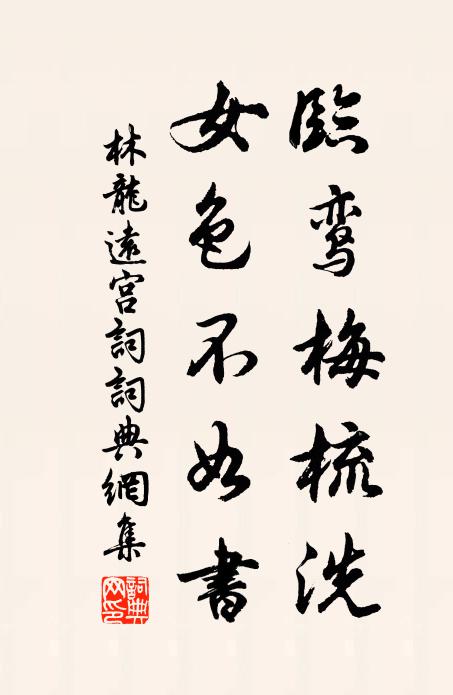 臨鸾梅梳洗
女色不如書
林龍遠宮詞詞典網集
詞典網印